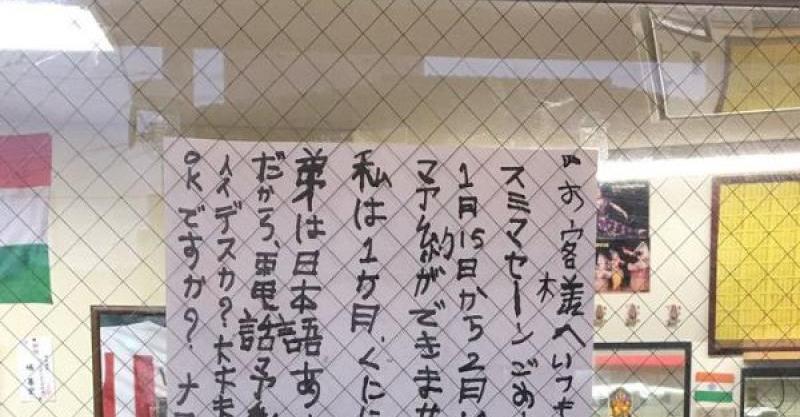 お客様へいつも
スミマセーンごめ
1月15日から2月1
約ができませ
私は1ヶ月、くにに
弟は日本語あ
だから、電話予
デスカ?大丈夫
OKですか?ナ